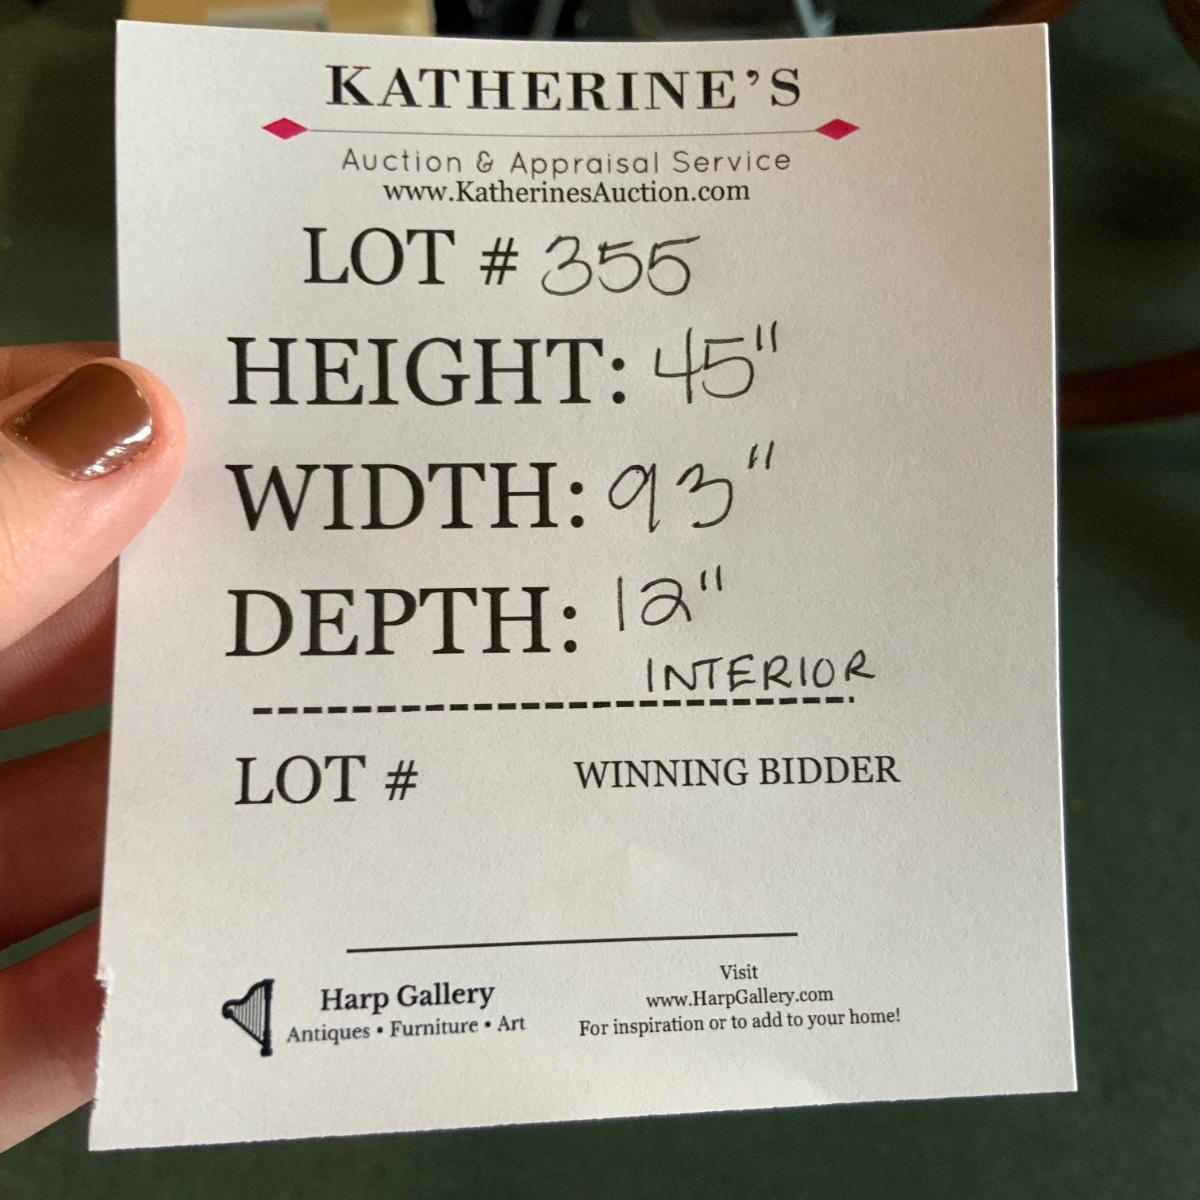 KATHERINE'S
Auction & Appraisal Service
www.KatherinesAuction.com
LOT # 355
HEIGHT: 45"
WIDTH: 93"
DEPTH: 12"
INTERIOR
LOT #
WINNING BIDDER
Harp Gallery
Antiques • Furniture • Art
Visit
www.HarpGallery.com
For inspiration or to add to your home!